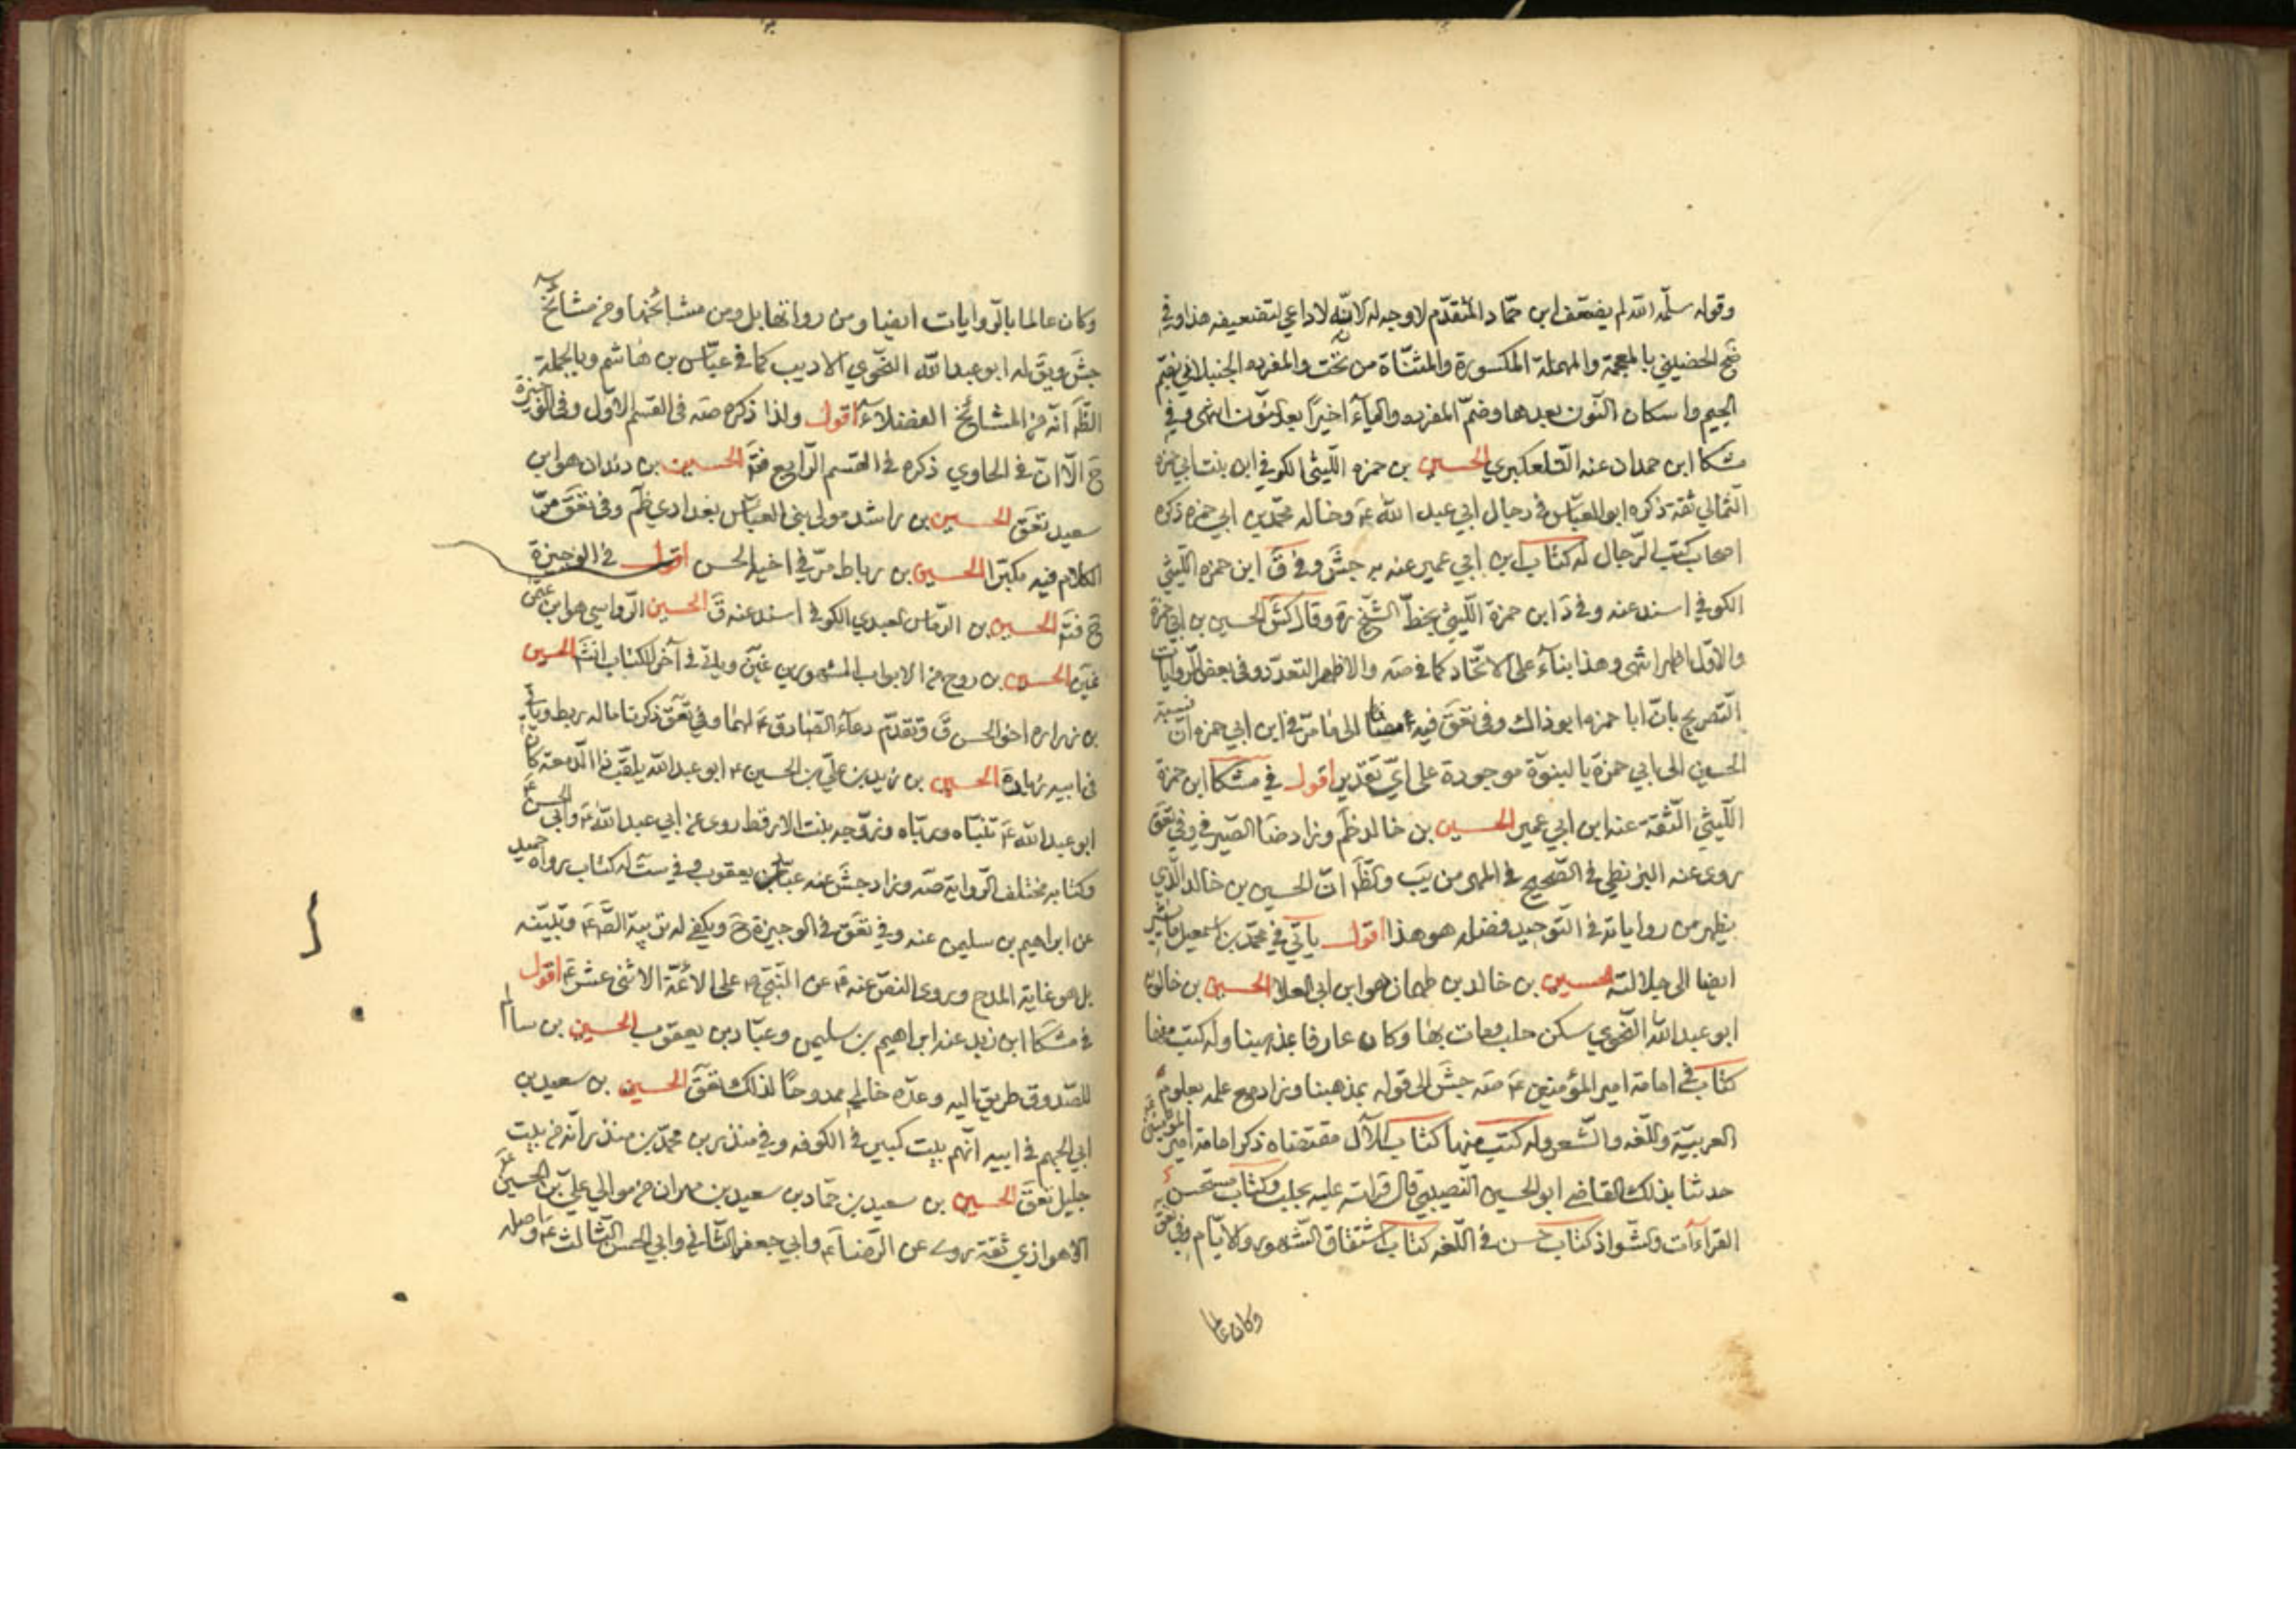 وقوله سلّمه الله لم يضعّف ابن حمّاد المتقدّم لا وجه له لانّه لا داعي لتضعيفه هذا وفي
ضح الحضيني بالمعجمة والمهملة المكسورة والمثنّاة من تحت والمفرده الجنبلاني بضمّ
الجيم واسكان النّون بعدها وضمّ المفرده والياء اخيرًا بعد النّون انتهى وفي
مشكا ابن حمدان عنه التلعكبري الحسين بن حمزه اللّيثي الكوفي ابن بنت ابي حمزه
الثّمالي ثقة ذكره ابو العبّاس في رجال ابي عبد الله ع وخاله محمّد بن ابي حمزه ذكره
اصحاب كتب الرّجال له كتاب ابن ابي عمير عنه به جش وفي ق ابن حمزه اللّيثي
الكوفي اسند عنه وفي د ابن حمزة اللّيثي بخطّ الشّيخ ره وقال كش الحسين بن ابي حمزة
والاوّل اظهر انتهى وهذا بناء على الاتّحاد كما في صه والاظهر التعدّد وفي بعض الرّوايات
التّصريح بانّ ابا حمزه ابو ذاك وفي تعق فيه مضافا الى ما مرّ في ابن ابي حمزه انّ نسبة
الحسين الى ابي حمزة بالبنوّة موجودة على ايّ تقدير اقول في مشكا ابن حمزة
اللّيثي الثّقة عنه ابن ابي عمير الحسين بن خالد ظم وزاد ضا الصّيرفي وفي تعق
روى عنه البزنطي في الصّحيح في المهر من يب والظّ انّ الحسين بن خالد الّذي
يظهر من رواياته في التّوحيد فضله هو هذا اقول ياتي في محمّد بن اسمعيل ما يشير
ايضا الى جلالته الحسين بن خالد بن طهمان هو ابن ابي العلا الحسين بن خالويه
ابو عبد الله النّحوي سكن حلب ومات بها وكان عارفا بمذهبنا وله كتب منها
كتاب في امامة امير المؤمنين ع صه جش الى قوله بمذهبنا وزاد مع علمه بعلوم
العربيّة واللّغه والشّعر وله كتب منها كتاب الآل مقتضاه ذكر امامة امير المؤمنين ع
حدثنا بذلك القاضي ابو الحسين النّصيبي قال قراته عليه بحلب وكتاب مستحسن
القراءات والشّواذ كتاب حسن في اللّغه كتاب اشتقاق الشّهور والايّام وفي تعق
وكان عالما
وكان عالما بالرّوايات ايضا ومن رواتها بل ومن مشايخها ومن مشائخ
جش ويق له ابو عبد الله النّحوي الاديب كما في عبّاس بن هاشم وبالجملة
الظّ انّه من المشائخ الفضلاء اقول ولذا ذكره صه في القسم الاوّل وفي الوجيزة
ح الّا انّ في الحاوي ذكره في القسم الرّابع فتد الحسين بن دندان هو ابن
سعيد تعق الحسين بن راشد مولى بني العبّاس بغدادي ظم وفي تعق مرّ
الكلام فيه مكبّرا الحسين بن رباط مرّ في اخيه الحسن اقول في الوجيزة
ح فتد الحسين بن الرمّاس العبدي الكوفي اسند عنه ق الحسين الرّواسي هو ابن عثمن
غين الحسين بن روح من الابواب المشهورين غين وياتي في آخر الكتاب انش الحسين
بن زراره اخو الحسن ق وتقدّم دعاء الصّادق ع لهما وفي تعق ذكرنا ما له ربط وياتي
في ابيه زيادة الحسين بن زيد بن علي بن الحسين ع ابو عبد الله يلقّب ذا الدّمعة كان
ابو عبد الله ع تبنّاه وربّاه وزوّجه بنت الارقط روى عن ابي عبد الله ع وابي الحسن ع
وكتابه مختلف الرّواية صه وزاد جش عنه عبّاد بن يعقوب وفي ست له كتاب رواه حميد
عن ابراهيم بن سليمن عنه وفي تعق في الوجيزة ح ويكفي له تربية الصّ ع وتبنّيه
بل هو غاية المدح وروى النصّ عنه ع عن النّبي ص على الائمّة الاثنى عشر ع اقول
في مشكا ابن زيد عنه ابراهيم بن سليمن وعبّاد بن يعقوب الحسين بن سالم
للصّدوق طريق اليه وعدّه خالي ممدوحًا لذلك تعق الحسين بن سعيد بن
ابي الجهم في ابيه انّهم بيت كبير في الكوفه وفي منذر بن محمّد بن منذر انّه من بيت
جليل تعق الحسين بن سعيد بن حمّاد بن سعيد بن مهران من موالي علي بن الحسين ع
الاهوازي ثقة روى عن الرّضا ع وابي جعفر الثّاني وابي الحسن الثّالث ع واصله